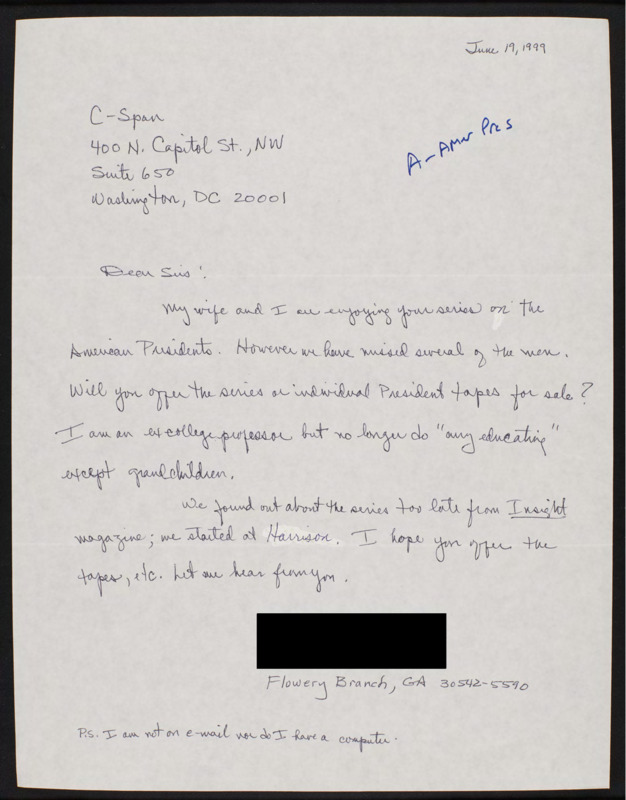 June 19, 1999
C-Span
400 N. Capitol St., NW
Suite 650
Washington, DC 20001
A-Amer Pres
Dear Sirs:
My wife and I are enjoying your series on the
American Presidents. However we have missed several of the men.
Will you offer the series or individual President tapes for sale?
I am an ex college professor but no longer do "any educating"
except grandchildren.
We found out about the series too late from Insight
magazine; we started at Harrison. I hope you offer the
tapes, etc. Let me hear from you.
Flowery Branch, GA 30542-5590
P.S. I am not on e-mail nor do I have a computer.